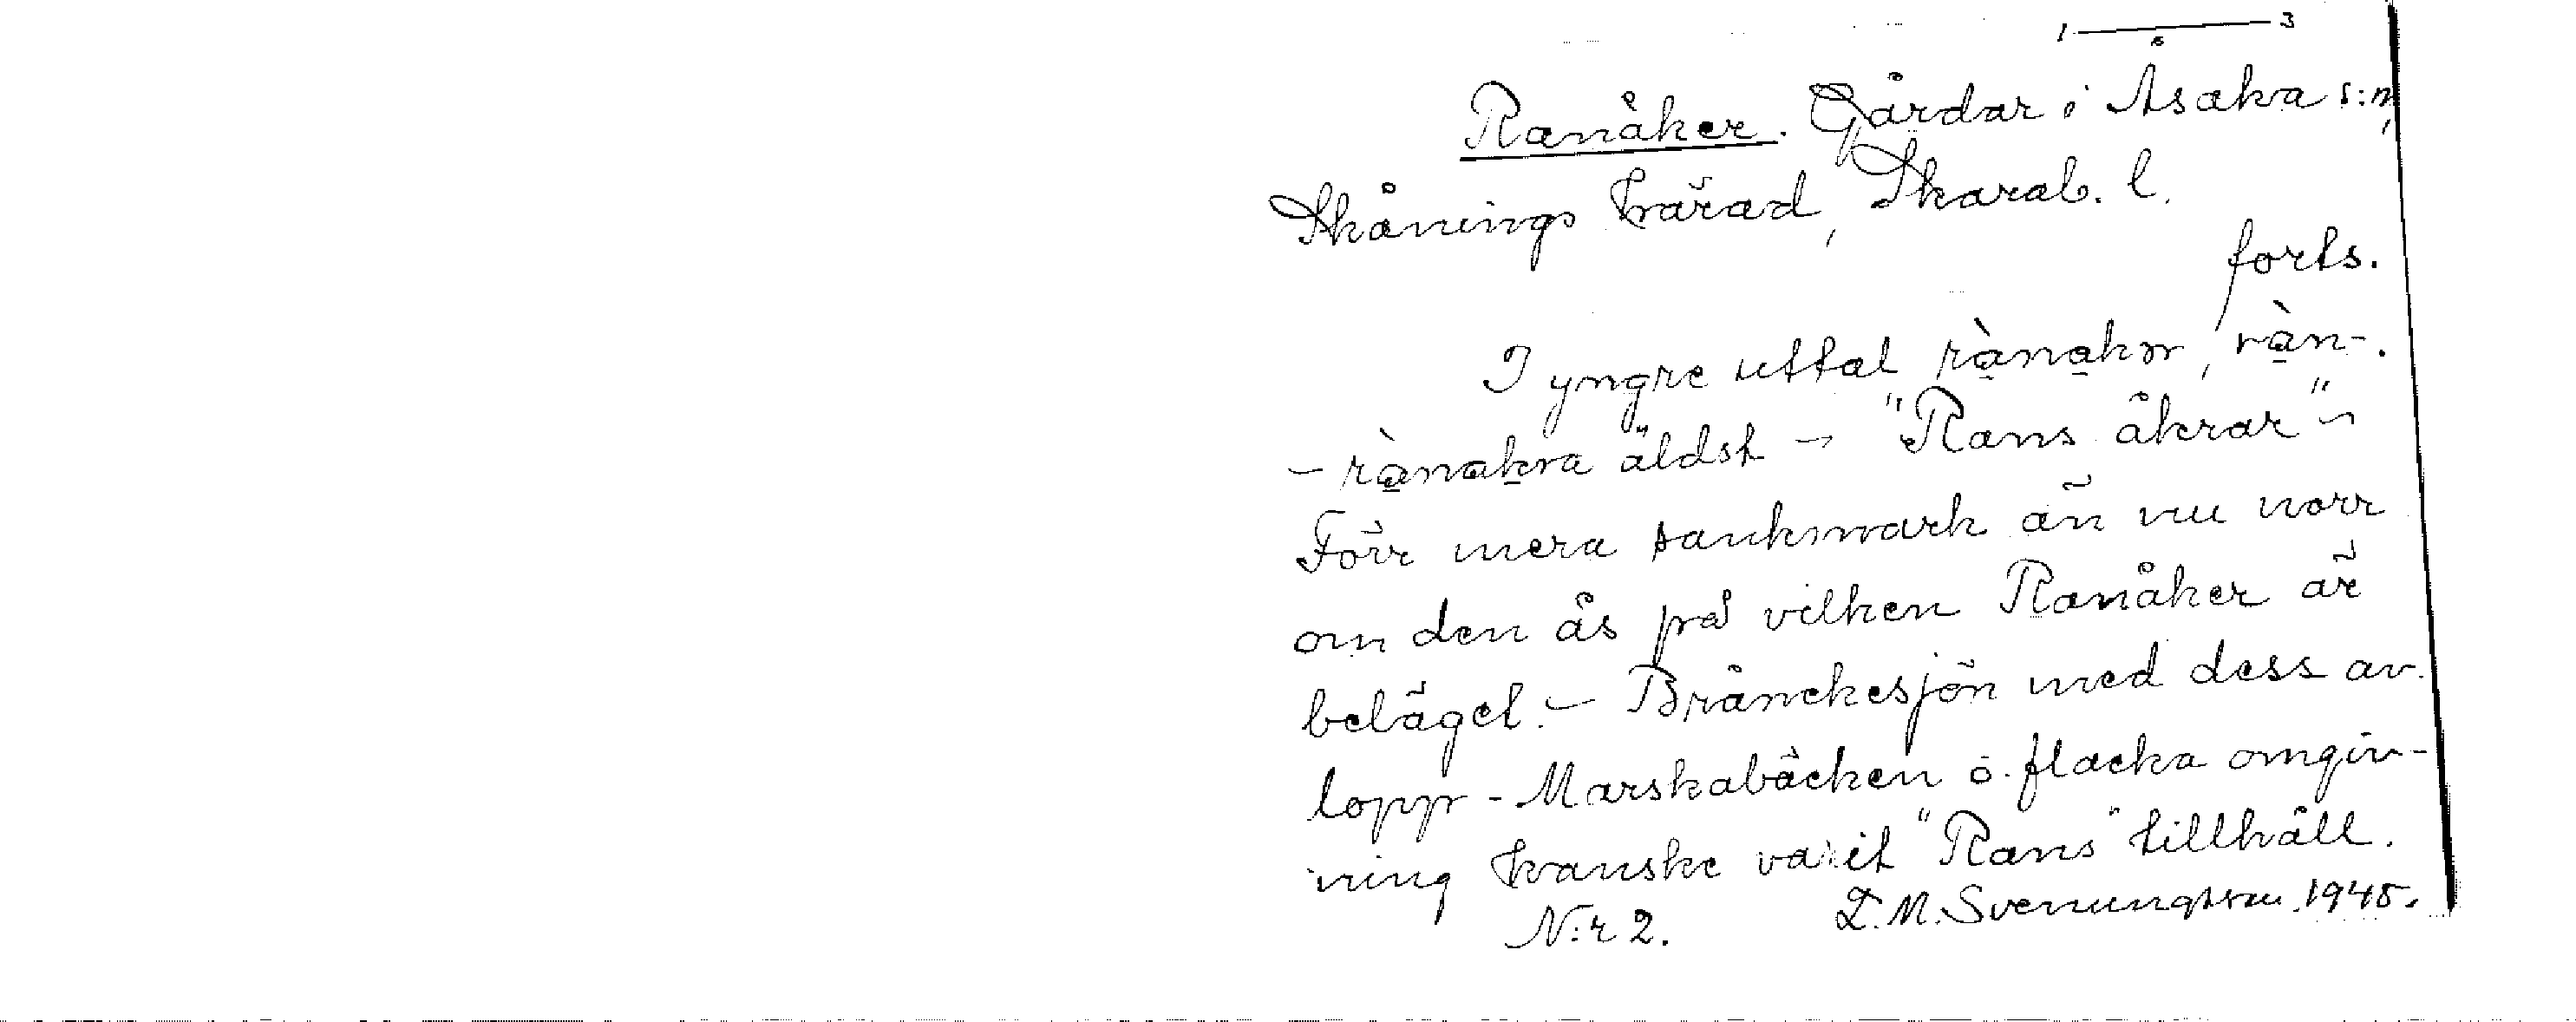 1 — 3
6
Ranåker. Gårdar i Åsaka s:n,
Skånings härad, Skarab. l.
forts.
I yngre uttal rànakɒr, ràn-.
- rànakra äldst - "Rans åkrar" -
Förr mera sankmark än nu norr
om den ås på vilken Ranåker är
beläget. - Bränekesjön med dess av-
lopp - Marskabäcken o. flacka omgiv-
ning kanske varit "Rans" tillhåll.
N:r 2. L. M. Svenungsson 1945.